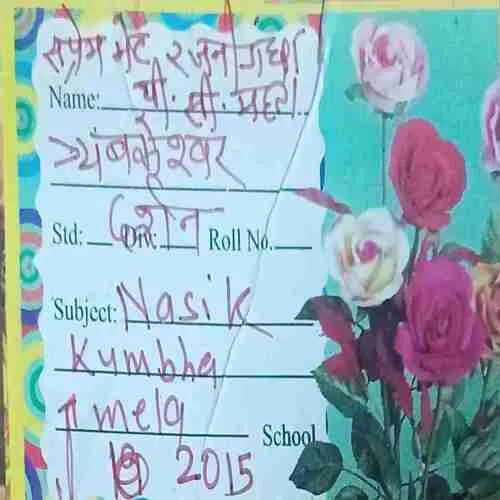 सप्रेम भेट रजनीगंधा
Name: पी. बी. महले
त्र्यंबकेश्वर
दर्शन
Std: Div: Roll No.
Subject: Nasik
Kumbha
mela
School
2015